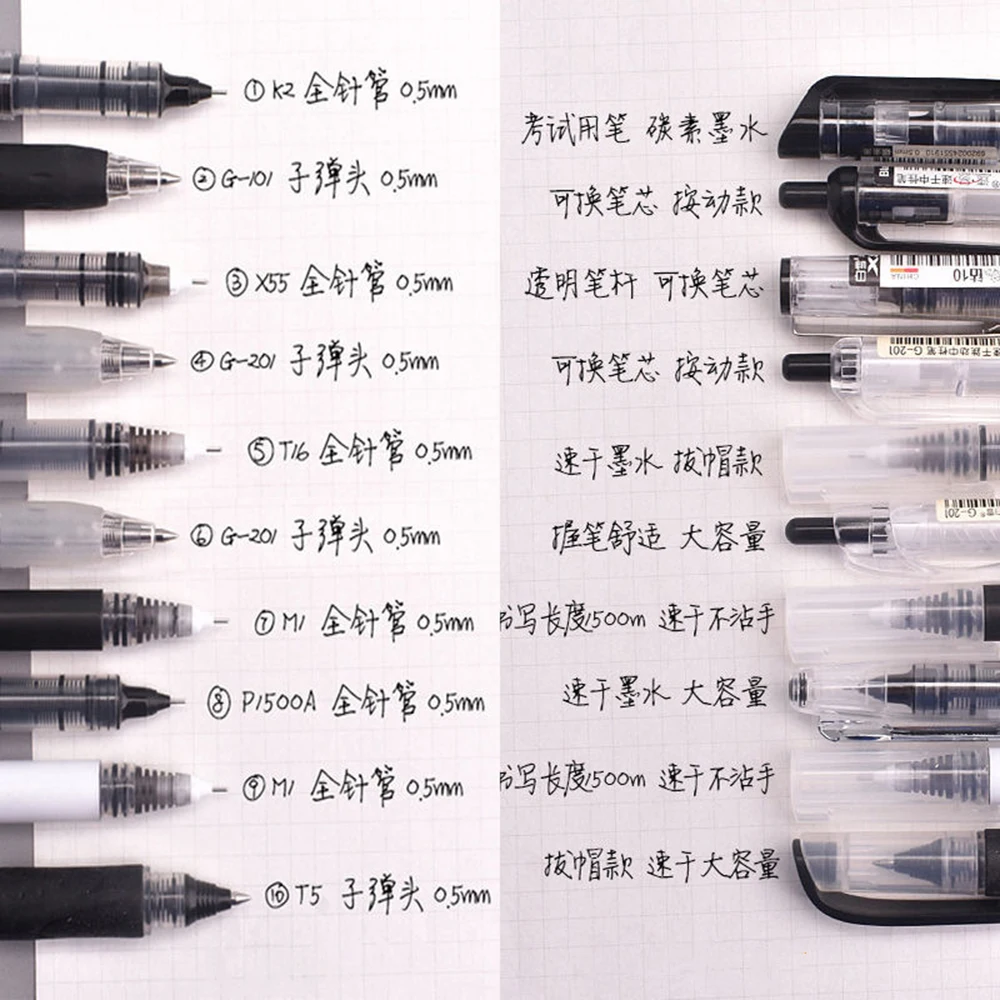 ①K2 全针管 0.5mm
②G-101 子弹头 0.5mm
③X55 全针管 0.5mm
④G-201 子弹头 0.5mm
⑤T16 全针管 0.5mm
⑥G-201 子弹头 0.5mm
⑦M1 全针管 0.5mm
⑧P1500A 全针管 0.5mm
⑨M1 全针管 0.5mm
⑩T5 子弹头 0.5mm
考试用笔 碳素墨水
6920024551910 0.5mm
可换笔芯 按动款
速干中性笔
透明笔杆 可换笔芯
CHINA
钻10
可换笔芯 按动款
中性笔 G-201
速干墨水 拔帽款
握笔舒适 大容量
G-201
书写长度1500m 速干不沾手
速干墨水 大容量
书写长度1500m 速干不沾手
拔帽款 速干大容量